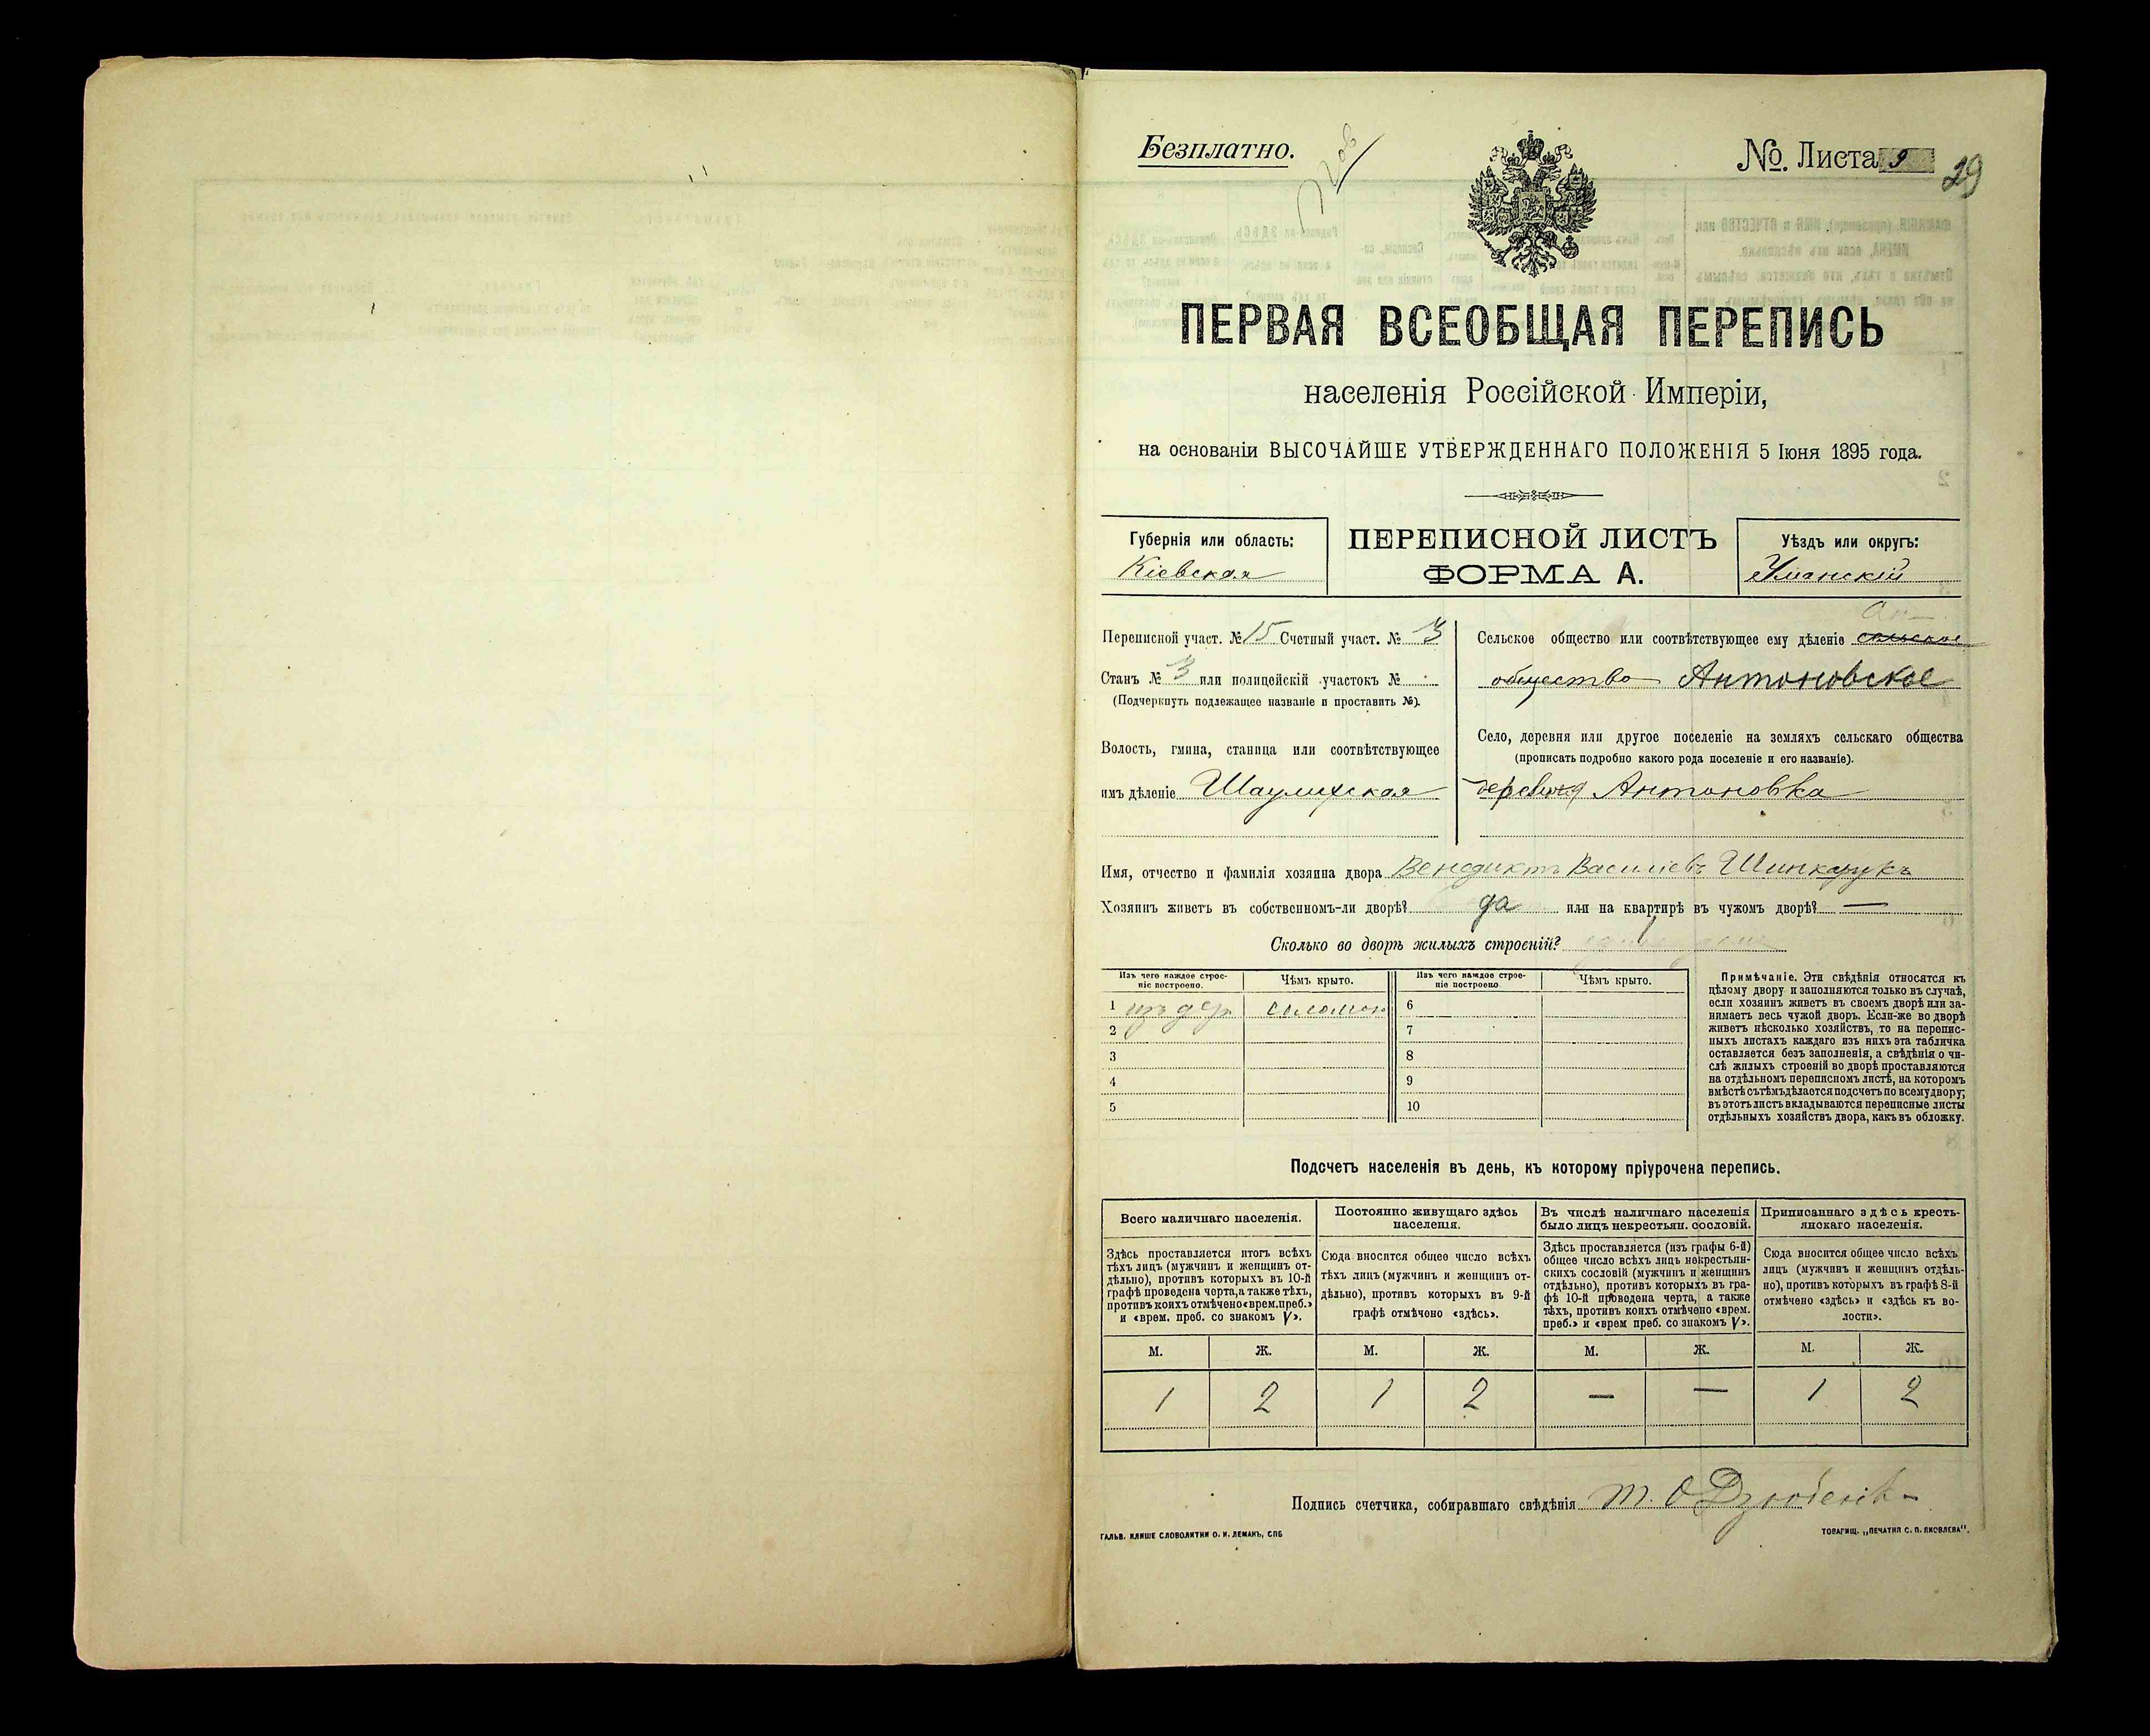 Безплатно.
№ Листа 9
29
ПЕРВАЯ ВСЕОБЩАЯ ПЕРЕПИСЬ
населенія Россійской Имперіи,
на основаніи ВЫСОЧАЙШЕ УТВЕРЖДЕННАГО ПОЛОЖЕНІЯ 5 Іюня 1895 года.
Губернія или область:
Кіевская
ПЕРЕПИСНОЙ ЛИСТЪ
ФОРМА А.
Уѣздъ или округъ:
Уманскій
Переписной участ. № 15 Счетный участ. № 3
Станъ № 3 или полицейскій участокъ №
(Подчеркнуть подлежащее названіе и проставить №).
Волость, гмина, станица или соотвѣтствующее
имъ дѣленіе
Сельское общество или соотвѣтствующее ему дѣленіе сельское
общество Антоновское
Село, деревня или другое поселеніе на земляхъ сельскаго общества
(прописать подробно какого рода поселеніе и его названіе).
деревня Антоновка
Имя, отчество и фамилія хозяина двора Венедиктъ Василіевъ Шинкарукъ
Хозяинъ живетъ въ собственномъ-ли дворѣ? да или на квартирѣ въ чужомъ дворѣ? —
Сколько во дворѣ жилыхъ строеній? 1
Изъ чего каждое строе-
ніе построено.
Чѣмъ крыто.
Изъ чего каждое строе-
ніе построено
Чѣмъ крыто.
1 изъ дер соломою 6
2 7
3 8
4 9
5 10
Примѣчаніе. Эти свѣдѣнія относятся къ
цѣлому двору и заполняются только въ случаѣ,
если хозяинъ живетъ въ своемъ дворѣ или за-
нимаетъ весь чужой дворъ. Если-же во дворѣ
живетъ нѣсколько хозяйствъ, то на перепис-
ныхъ листахъ каждаго изъ нихъ эта табличка
оставляется безъ заполненія, а свѣдѣнія о чи-
слѣ жилыхъ строеній во дворѣ проставляются
на отдѣльномъ переписномъ листѣ, на которомъ
вмѣстѣ съ тѣмъ дѣлается подсчетъ по всему двору;
въ этотъ листъ вкладываются переписные листы
отдѣльныхъ хозяйствъ двора, какъ въ обложку.
Подсчетъ населенія въ день, къ которому пріурочена перепись.
Всего наличнаго населенія.
Здѣсь проставляется итогъ всѣхъ
тѣхъ лицъ (мужчинъ и женщинъ от-
дѣльно), противъ которыхъ въ 10-й
графѣ проведена черта, а также тѣхъ,
противъ коихъ отмѣчено «врем. преб.»
и «врем. преб. со знакомъ V».
Постоянно живущаго здѣсь
населенія.
Сюда вносится общее число всѣхъ
тѣхъ лицъ (мужчинъ и женщинъ от-
дѣльно), противъ которыхъ въ 9-й
графѣ отмѣчено «здѣсь».
Въ числѣ наличнаго населенія
было лицъ некрестьян. сословій.
Здѣсь проставляется (изъ графы 6-й)
общее число всѣхъ лицъ некрестьян-
скихъ сословій (мужчинъ и женщинъ
отдѣльно), противъ которыхъ въ гра-
фѣ 10-й проведена черта, а также
тѣхъ, противъ коихъ отмѣчено «врем.
преб.» и «врем преб. со знакомъ V».
Приписаннаго здѣсь кресть-
янскаго населенія.
Сюда вносится общее число всѣхъ
лицъ (мужчинъ и женщинъ отдѣль-
но), противъ которыхъ въ графѣ 8-й
отмѣчено «здѣсь» и «здѣсь къ во-
лости».
М. Ж. М. Ж. М. Ж. М. Ж.
1 2 1 2 — — 1 2
Подпись счетчика, собиравшаго свѣдѣнія
ГАЛЬВ. КЛИШЕ СЛОВОЛИТНИ О. И. ЛЕМАНЪ, СПБ
ТОВАРИЩ. „ПЕЧАТНЯ С. П. ЯКОВЛЕВА".